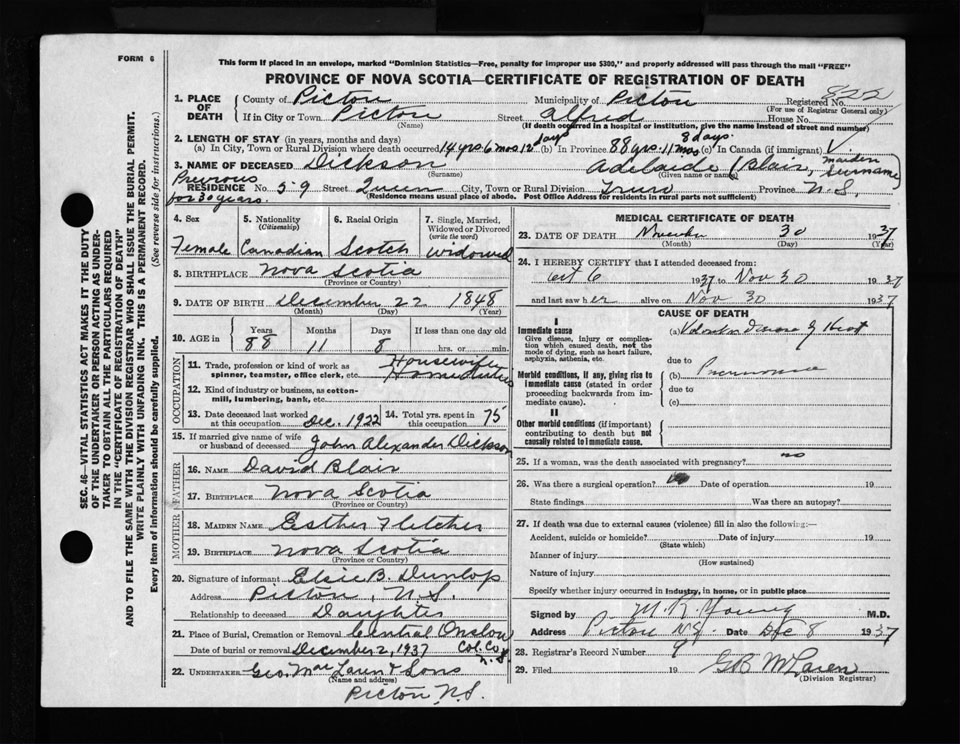 FORM 6
This form if placed in an envelope, marked "Dominion Statistics—Free, penalty for improper use $300," and properly addressed will pass through the mail "FREE"
PROVINCE OF NOVA SCOTIA—CERTIFICATE OF REGISTRATION OF DEATH
822
1. PLACE OF DEATH County of Pictou Municipality of Pictou Registered No. (For use of Registrar General only)
If in City or Town Pictou (Name) Street Alfred House No.
(If death occurred in a hospital or institution, give the name instead of street and number)
2. LENGTH OF STAY (in years, months and days)
(a) In City, Town or Rural Division where death occurred 14 yrs. 6 mos. 12 days (b) In Province 88 yrs. 11 mos 8 days. (c) In Canada (if immigrant)
3. NAME OF DECEASED Dickson (Surname) Adelaide (Blair, maiden surname) (Given name or names)
Previous for 30 years.
RESIDENCE No. 59 Street Queen City, Town or Rural Division Truro Province N.S.
(Residence means usual place of abode. Post Office Address for residents in rural parts not sufficient)
4. Sex Female
5. Nationality (Citizenship) Canadian
6. Racial Origin Scotch
7. Single, Married, Widowed or Divorced (write the word) Widowed
8. BIRTHPLACE Nova Scotia (Province or Country)
9. DATE OF BIRTH December 22 1848 (Month) (Day) (Year)
10. AGE in Years 88 Months 11 Days 8 If less than one day old hrs. or min.
OCCUPATION
11. Trade, profession or kind of work as spinner, teamster, office clerk, etc. Housewife
12. Kind of industry or business, as cotton-mill, lumbering, bank, etc.
13. Date deceased last worked at this occupation Dec. 1922 14. Total yrs. spent in this occupation 75
15. If married give name of wife or husband of deceased John Alexander Dickson
FATHER
16. NAME David Blair
17. BIRTHPLACE Nova Scotia (Province or Country)
MOTHER
18. MAIDEN NAME Esther Fletcher
19. BIRTHPLACE Nova Scotia (Province or Country)
20. Signature of informant Elsie B. Dunlop
Address Pictou, N.S.
Relationship to deceased Daughter
21. Place of Burial, Cremation or Removal Central Onslow Col. Co. N.S.
Date of burial or removal December 2, 1937
22. UNDERTAKER Geo. MacLaren & Sons (Name and address)
Pictou N.S.
MEDICAL CERTIFICATE OF DEATH
23. DATE OF DEATH November 30 1937 (Month) (Day) (Year)
24. I HEREBY CERTIFY that I attended deceased from:
Oct 6 1937 to Nov 30 1937
and last saw her alive on Nov 30 1937
CAUSE OF DEATH
I
Immediate cause (a) Valvular Disease of Heart
Give disease, injury or complication which caused death, not the mode of dying, such as heart failure, asphyxia, asthenia, etc.
due to
Morbid conditions, if any, giving rise to immediate cause (stated in order proceeding backwards from immediate cause). (b) Pneumonia
due to
(c)
II
Other morbid conditions (if important) contributing to death but not causally related to immediate cause.
25. If a woman, was the death associated with pregnancy? no
26. Was there a surgical operation? No Date of operation 19
State findings Was there an autopsy?
27. If death was due to external causes (violence) fill in also the following:—
Accident, suicide or homicide? (State which) Date of injury 19
Manner of injury (How sustained)
Nature of injury
Specify whether injury occurred in industry, in home, or in public place
Signed by M. R. Young M.D.
Address Pictou N.S. Date Dec 8 1937
28. Registrar's Record Number
29. Filed 19 G B McLaren (Division Registrar)
SEC. 46—VITAL STATISTICS ACT MAKES IT THE DUTY OF THE UNDERTAKER OR PERSON ACTING AS UNDERTAKER TO OBTAIN ALL THE PARTICULARS REQUIRED IN THE "CERTIFICATE OF REGISTRATION OF DEATH" AND TO FILE THE SAME WITH THE DIVISION REGISTRAR WHO SHALL ISSUE THE BURIAL PERMIT.
WRITE PLAINLY WITH UNFADING INK. THIS IS A PERMANENT RECORD.
Every item of information should be carefully supplied. (See reverse side for instructions.)